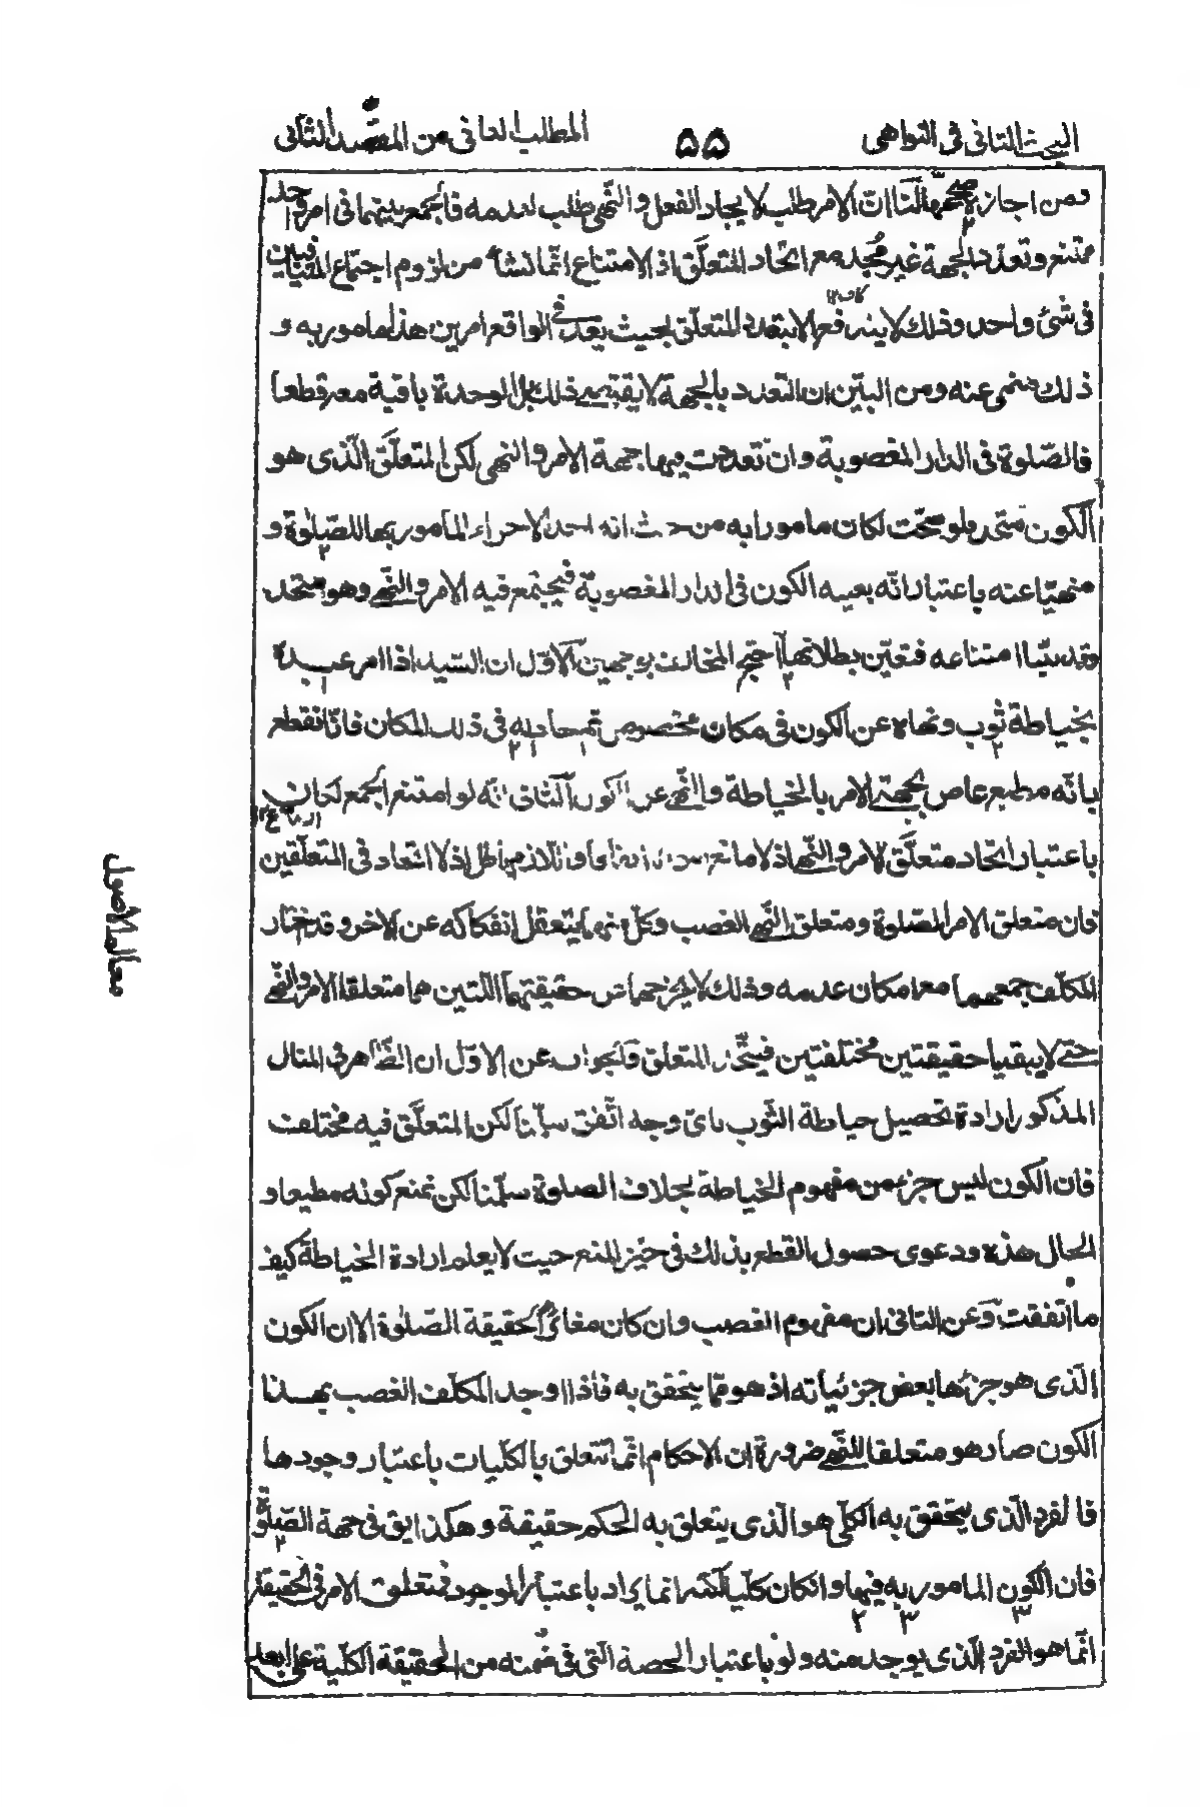 البحث الثانى فى النواهى ۵۵ المطلب الثانى من المقصد الثانى
ومن اجازه صححها لنا ان الامر طلب لايجاد الفعل والنهى طلب لعدمه فالجمع بينهما فى امر واحد
ممتنع وتعدد الجهة غير مجد مع اتحاد المتعلق اذ الامتناع انما نشأ من لزوم اجتماع المتنافيين
فى شئ واحد وذلك لا يندفع الا بتعدد المتعلق بحيث يعد فى الواقع امرين هذا مامور به و
ذلك منهى عنه ومن البين ان التعدد بالجهة لا يقتضى ذلك بل الوحدة باقية معه قطعا
فالصلوة فى الدار المغصوبة وان تعددت فيها جهة الامر والنهى لكن المتعلق الذى هو
الكون متحد فلو صحت لكان مامورا به من حيث انه احد الاجزاء المامور بها للصلوة و
منهيا عنه باعتبار انه بعينه الكون فى الدار المغصوبة فيجتمع فيه الامر والنهى وهو متحد
وقد بينا امتناعه فتعين بطلانها احتج المخالف بوجهين الاول ان السيد اذا امر عبده
بخياطة ثوب ونهاه عن الكون فى مكان مخصوص ثم خاطه فى ذلك المكان فانا نقطع
بانه مطيع عاص لجهتى الامر بالخياطة والنهى عن الكون الثانى انه لو امتنع الجمع لكان
باعتبار اتحاد متعلق الامر والنهى اذ لا مانع سواه اتفاقا واللازم باطل اذ لا اتحاد فى المتعلقين
فان متعلق الامر الصلوة ومتعلق النهى الغصب وكل منهما يتعقل انفكاكه عن الاخر وقد اختار
المكلف جمعهما مع امكان عدمه وذلك لا يخرجهما عن حقيقتهما اللتين هما متعلقا الامر والنهى
حتى لا يبقيا حقيقتين مختلفتين فيتحد المتعلق فالجواب عن الاول ان الظاهر فى المثال
المذكور ارادة تحصيل خياطة الثوب باى وجه اتفق سلمنا لكن المتعلق فيه مختلف
فان الكون ليس جزء من مفهوم الخياطة بخلاف الصلوة سلمنا لكن نمنع كونه مطيعا و
الحال هذه ودعوى حصول القطع بذلك فى حيز المنع حيث لا يعلم ارادة الخياطة كيف
ما اتفقت وعن الثانى ان مفهوم الغصب وان كان مغائرا لحقيقة الصلوة الا ان الكون
الذى هو جزئها بعض جزئياته اذ هو مما يتحقق به فاذا اوجد المكلف الغصب بهذا
الكون صار هو متعلقا للنهى ضرورة ان الاحكام انما تتعلق بالكليات باعتبار وجودها
فالفرد الذى يتحقق به الكلى هو الذى يتعلق به الحكم حقيقة وهكذا يق فى جهة الصلوة
فان الكون المامور به فيها وان كان كليا لكنه انما يراد باعتبار الوجود فمتعلق الامر فى الحقيقة
انما هو الفرد الذى يوجد منه ولو باعتبار الحصة التى فى ضمنه من الحقيقة الكلية على ابعد
معالم الاصول